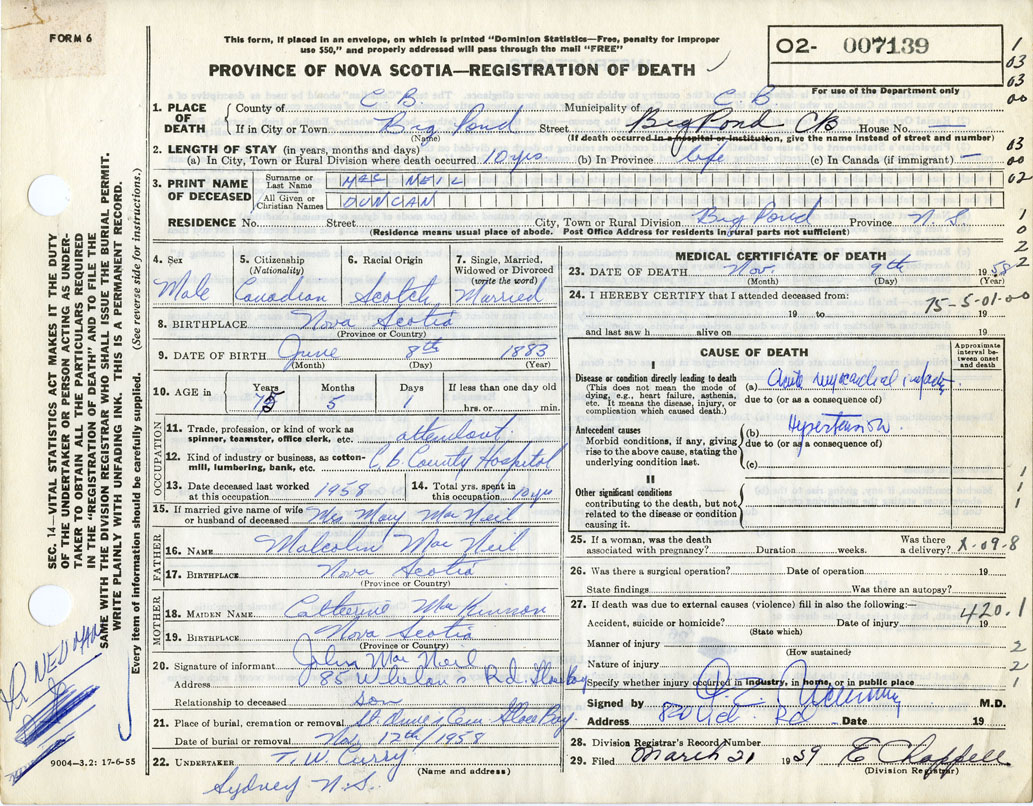 FORM 6
This form, if placed in an envelope, on which is printed "Dominion Statistics—Free, penalty for improper
use $50," and properly addressed will pass through the mail "FREE"
O2- 007139
For use of the Department only
PROVINCE OF NOVA SCOTIA—REGISTRATION OF DEATH
1. PLACE OF DEATH
County of C. B. Municipality of C. B
If in City or Town Big Pond Street Big Pond CB House No. —
(Name) (If death occurred in a hospital or institution, give name instead of street and number)
2. LENGTH OF STAY (in years, months and days)
(a) In City, Town or Rural Division where death occurred 10 yrs (b) In Province life (c) In Canada (if immigrant) —
3. PRINT NAME OF DECEASED
Surname or Last Name MAC NEIL
All Given or Christian Names DUNCAN
RESIDENCE No. Street City, Town or Rural Division Big Pond Province N. S.
(Residence means usual place of abode. Post Office Address for residents in rural parts not sufficient)
4. Sex 5. Citizenship (Nationality) 6. Racial Origin 7. Single, Married, Widowed or Divorced (write the word)
Male Canadian Scotch Married
8. BIRTHPLACE Nova Scotia
(Province or Country)
9. DATE OF BIRTH June 8th 1883
(Month) (Day) (Year)
10. AGE in Years Months Days If less than one day old
75 5 1 hrs. or min.
OCCUPATION
11. Trade, profession or kind of work as spinner, teamster, office clerk, etc. attendant
12. Kind of industry or business, as cotton-mill, lumbering, bank, etc. C. B. County Hospital
13. Date deceased last worked at this occupation 1958 14. Total yrs. spent in this occupation 10 yrs
15. If married give name of wife or husband of deceased Mrs Mary MacNeil
FATHER
16. NAME Malcolm MacNeil
17. BIRTHPLACE Nova Scotia
(Province or Country)
MOTHER
18. MAIDEN NAME Catherine MacKinnon
19. BIRTHPLACE Nova Scotia
(Province or Country)
20. Signature of informant John MacNeil
Address 85 Whelan's Rd. Glace Bay
Relationship to deceased son
21. Place of burial, cremation or removal St. Anne's Cem Glace Bay
Date of burial or removal Nov. 12th/1958
22. UNDERTAKER T. W. Curry
(Name and address)
Sydney N. S.
9004—3.2: 17-6-55
MEDICAL CERTIFICATE OF DEATH
23. DATE OF DEATH Nov. 9th 1958
(Month) (Day) (Year)
24. I HEREBY CERTIFY that I attended deceased from:
75-5-01-00
19 to 19
and last saw h alive on 19
CAUSE OF DEATH
Approximate interval between onset and death
I
Disease or condition directly leading to death
(This does not mean the mode of dying, e.g., heart failure, asthenia, etc. It means the disease, injury, or complication which caused death.)
(a) Acute myocardial infarct.
due to (or as a consequence of)
Antecedent causes
Morbid conditions, if any, giving rise to the above cause, stating the underlying condition last.
(b) Hypertension
due to (or as a consequence of)
(c)
II
Other significant conditions
contributing to the death, but not related to the disease or condition causing it.
25. If a woman, was the death associated with pregnancy? Duration weeks. Was there a delivery? X-09-8
26. Was there a surgical operation? Date of operation 19
State findings Was there an autopsy?
27. If death was due to external causes (violence) fill in also the following:—
420.1
Accident, suicide or homicide? Date of injury 19
(State which)
Manner of injury
(How sustained)
Nature of injury
Specify whether injury occurred in industry, in home, or in public place
Signed by M.D.
Address Rd Date 19
28. Division Registrar's Record Number
29. Filed March 21 1959 E Chappell
(Division Registrar)
SEC. 14—VITAL STATISTICS ACT MAKES IT THE DUTY
OF THE UNDERTAKER OR PERSON ACTING AS UNDER-
TAKER TO OBTAIN ALL THE PARTICULARS REQUIRED
IN THE "REGISTRATION OF DEATH" AND TO FILE THE
SAME WITH THE DIVISION REGISTRAR WHO SHALL ISSUE THE BURIAL PERMIT.
WRITE PLAINLY WITH UNFADING INK. THIS IS A PERMANENT RECORD.
Every item of information should be carefully supplied. (See reverse side for instructions.)
DR NEUMAN
1
03
03
00
03
00
02
1
0
2
2
1
1
1
2
2
1